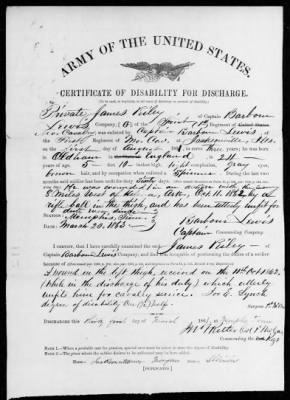 ARMY OF THE UNITED STATES.
CERTIFICATE OF DISABILITY FOR DISCHARGE.
Private James Riley of Captain Barbour
Lewis Company, (G) of the First (1st) Regiment of United States
Mo. Cavalry was enlisted by Captain Barbour Lewis, of
the First Regiment of Mo. Cav. at Jacksonville Ills.
on the First day of August 1861, to serve Three years; he was born
in Oldham in England is 24
years of age, 5 feet inches high, light complexion, Gray eyes,
brown hair, and by occupation when enlisted a Spinner. During the last two
months said soldier has been unfit for duty days.
He was wounded in an action with the
8 miles west of Ark, Oct. 11, 1862 by a
rifle ball in the thigh, and has been entirely unfit for
duty ever since
Memphis Tenn. Barbour Lewis
Date: March 20, 1863 Captain
Commanding Company.
I certify, that I have carefully examined the said James Riley of
Captain Barbour Lewis' Company, and find him incapable of performing the duties of a soldier
because of
A wound in the left thigh, received on the 11th Oct 1862,
(While in the discharge of his duty) which utterly
unfits him for cavalry service. Geo. E. Lynch
degree of disability one half
Surgeon
Discharged this day of March 1863, at Memphis Tenn
Commanding the Reg't
Note 1.—When a probable case for pension, special care must be taken to state the degree of disability.
Note 2.—The place where the soldier desires to be addressed may be here added.
Town— Jacksonville County— Morgan State— Illinois
[DUPLICATES.]